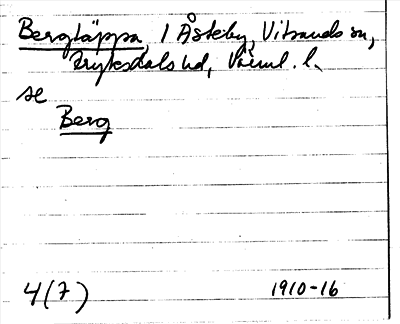 Bergtäppa, 1 Åsteby, Vitsands sn,
Fryksdals hd, Värml. l.
se
Berg
4(7) 1910-16